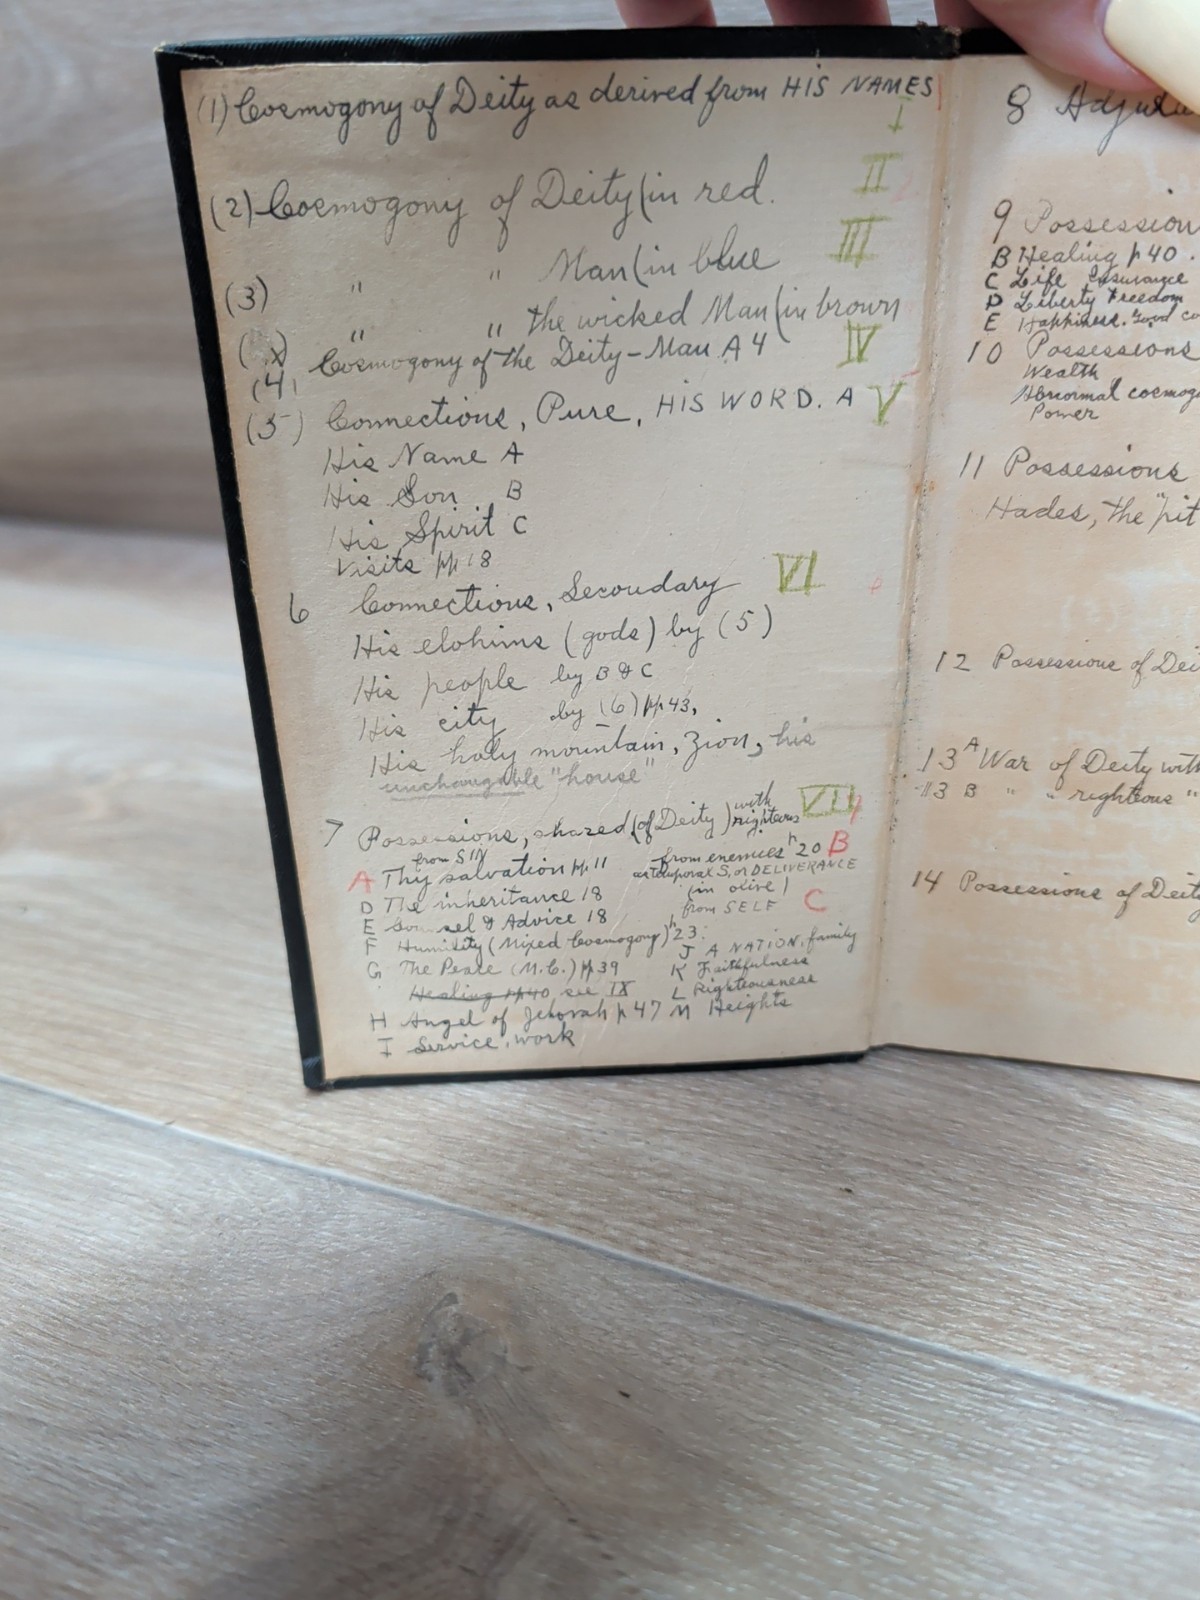 (1) Cosmogony of Deity as derived from HIS NAMES
I
(2) Cosmogony of Deity (in red.
II
(3) " " Man (in blue
III
" " the wicked Man (in brown
(4) Cosmogony of the Deity-Man A 4
IV
(5) Connections, Pure, HIS WORD. A
V
His Name A
His Son B
His Spirit C
Visits pp 18
6 Connections, Secondary
VI
His elohims (gods) by (5)
His people by B & C
His city by (6) pp 43,
His holy mountain, Zion, his
unchangable "house"
7 Possessions, shared (of Deity) with righteous
VII
from SIN
A Thy salvation pp 11
from enemies p 20 B
as temporal S, or DELIVERANCE
(in olive)
from SELF C
D The inheritance 18
E Counsel & Advice 18
F Humility (Mixed Cosmogony) p 23
G The Peace (M.C.) pp 39
Healing pp 40 see IX
H Angel of Jehovah p 47
I Service, work
J A NATION, family
K Faithfulness
L Righteousness
M Heights
8
9 Possession
B Healing p 40.
C Life Insurance
D Liberty Freedom
E Happiness. Good
10 Possessions
Wealth
Abnormal
Power
11 Possessions
Hades, the "pit
12 Possessions of
13 A War of Deity with
13 B " " righteous "
14 Possessions of Deity